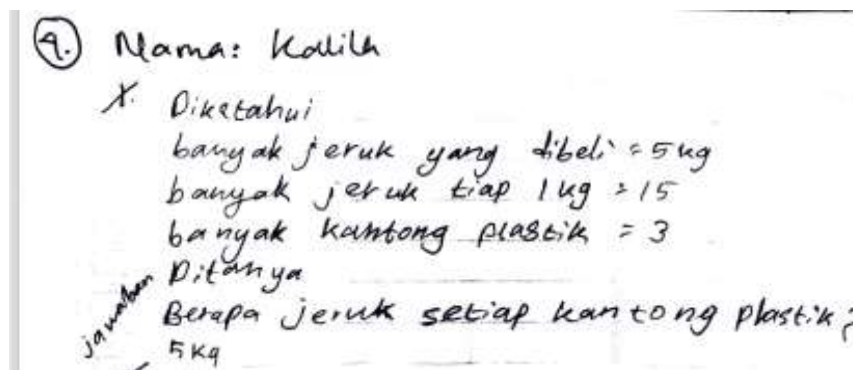 9. Nama: Kalila
X. Diketahui
banyak jeruk yang dibeli = 5 kg
banyak jeruk tiap 1 kg = 15
banyak kantong plastik = 3
Ditanya
Berapa jeruk setiap kantong plastik?
jawaban
5 kg